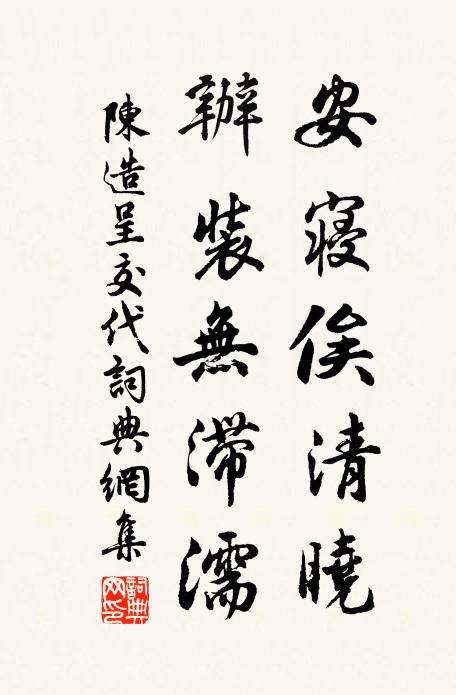 安寝俟清曉
辦裝無滯濡
陳造呈交代詞典網集
詞典网印